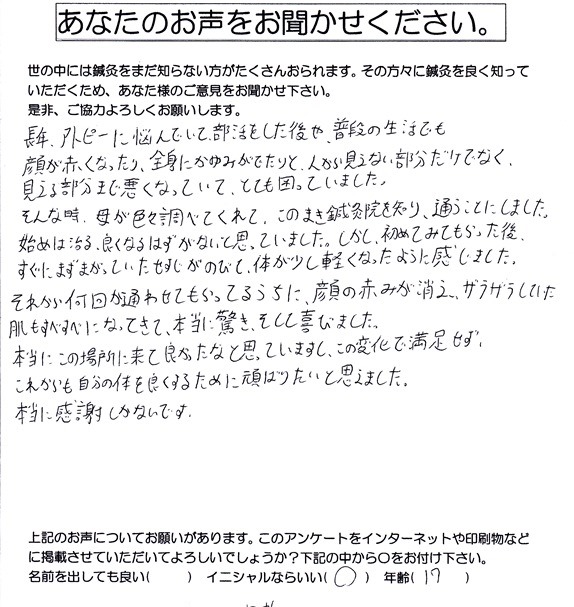 あなたのお声をお聞かせください。
世の中には鍼灸をまだ知らない方がたくさんおられます。その方々に鍼灸を良く知って
いただくため、あなた様のご意見をお聞かせ下さい。
是非、ご協力よろしくお願いします。
長年、アトピーに悩んでいて、部活をした後や、普段の生活でも
顔が赤くなったり、全身にかゆみがでたりと、人から見えない部分だけでなく、
見える部分まで悪くなっていて、とても困っていました。
そんな時、母が色々調べてくれて、このまき鍼灸院を知り、通うことにしました。
始めは治る、良くなるはずがないと思っていました。しかし、初めてみてもらった後、
すぐにまずまがっていたせすじがのびて、体が少し軽くなったように感じました。
それから何回か通わせてもらってるうちに、顔の赤みが消え、ザラザラしていた
肌もすべすべになってきて、本当に驚き、そして喜びました。
本当にこの場所に来て良かったなと思っていますし、この変化で満足せず、
これからも自分の体を良くするために頑ばりたいと思えました。
本当に感謝しかないです。
上記のお声についてお願いがあります。このアンケートをインターネットや印刷物など
に掲載させていただいてよろしいでしょうか?下記の中から○をお付け下さい。
名前を出しても良い( ) イニシャルならいい(○) 年齢(17)